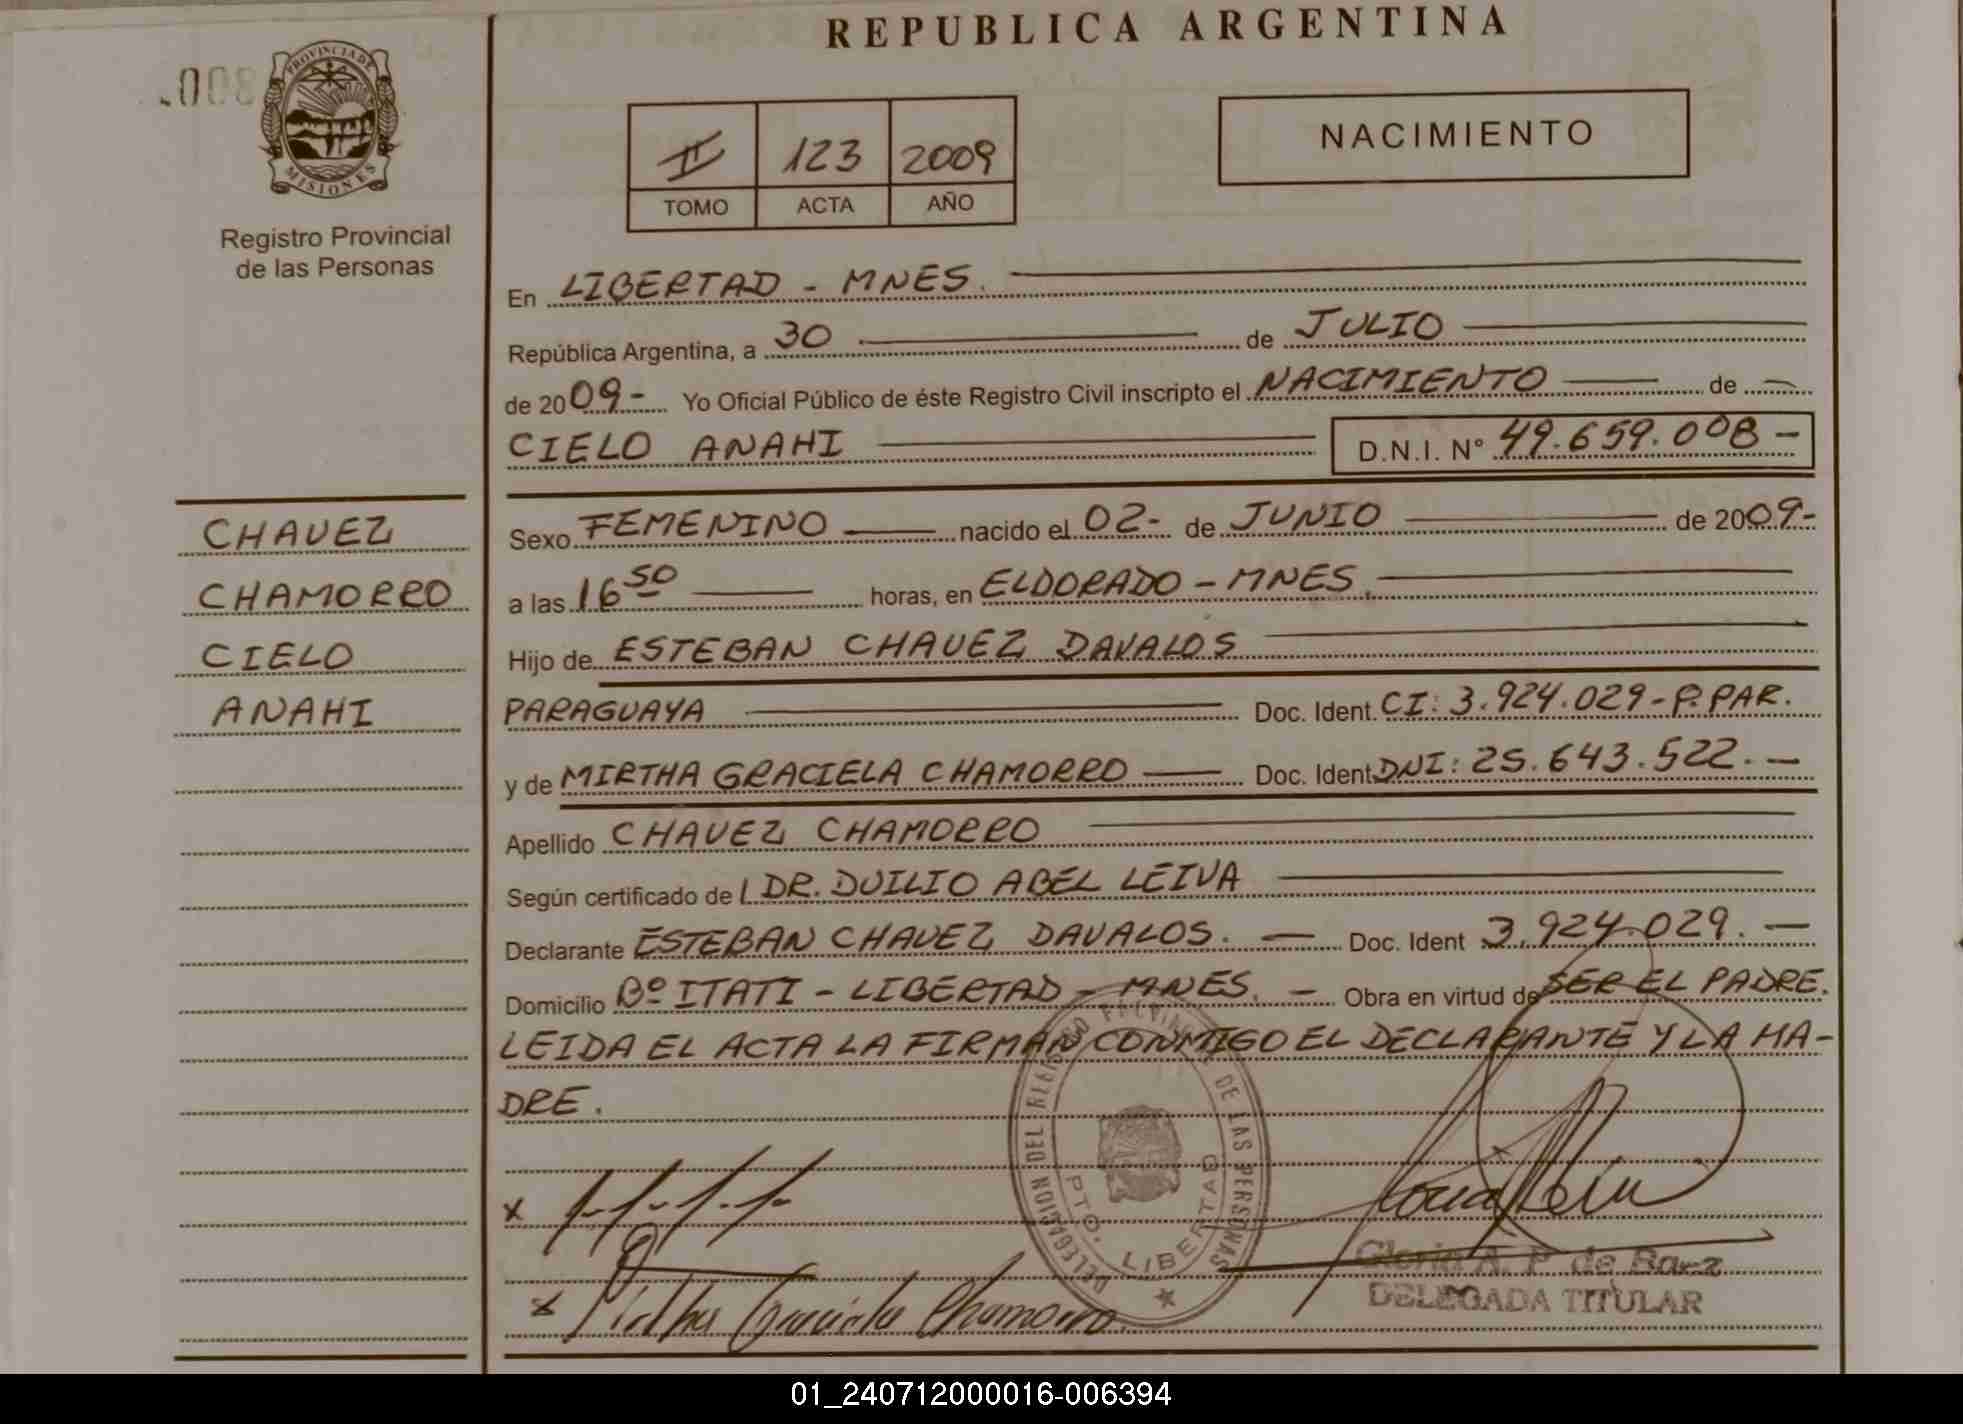 REPUBLICA ARGENTINA
PROVINCIA DE
MISIONES
Registro Provincial
de las Personas
II 123 2009
TOMO ACTA AÑO
NACIMIENTO
En LIBERTAD - MNES.
República Argentina, a 30 de JULIO
de 2009- Yo Oficial Público de éste Registro Civil inscripto el NACIMIENTO de -
CIELO ANAHI D.N.I. Nº 49.659.008 -
CHAVEZ
CHAMORRO
CIELO
ANAHI
Sexo FEMENINO nacido el 02- de JUNIO de 2009-
a las 16 50 horas, en ELDORADO - MNES.
Hijo de ESTEBAN CHAVEZ DAVALOS
PARAGUAYA Doc. Ident. CI: 3.924.029-P.PAR.
y de MIRTHA GRACIELA CHAMORRO Doc. Ident DNI: 25.643.522. -
Apellido CHAVEZ CHAMORRO
Según certificado de DR. DUILIO ABEL LEIVA
Declarante ESTEBAN CHAVEZ DAVALOS. - Doc. Ident 3.924.029. -
Domicilio Bº ITATI - LIBERTAD - MNES. - Obra en virtud de SER EL PADRE.
LEIDA EL ACTA LA FIRMAN CONMIGO EL DECLARANTE Y LA MA-
DRE.
DELEGACION DEL REGISTRO PROVINCIAL DE LAS PERSONAS
PTO. LIBERTAD
x
x Mirtha Graciela Chamorro
Gloria A. P. de
DELEGADA TITULAR
01_240712000016-006394